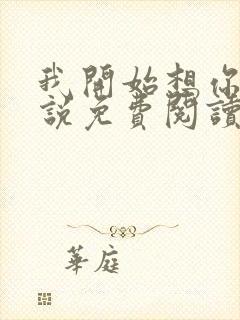 我開始想你
說免費閱讀
華庭